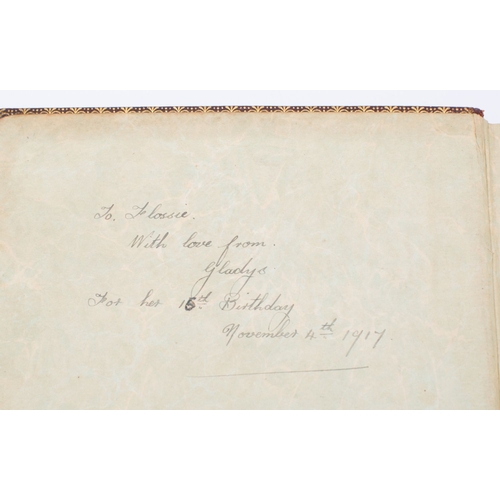 To. Flossie.
With love from.
Gladys
For her 15th Birthday
November 4th 1917